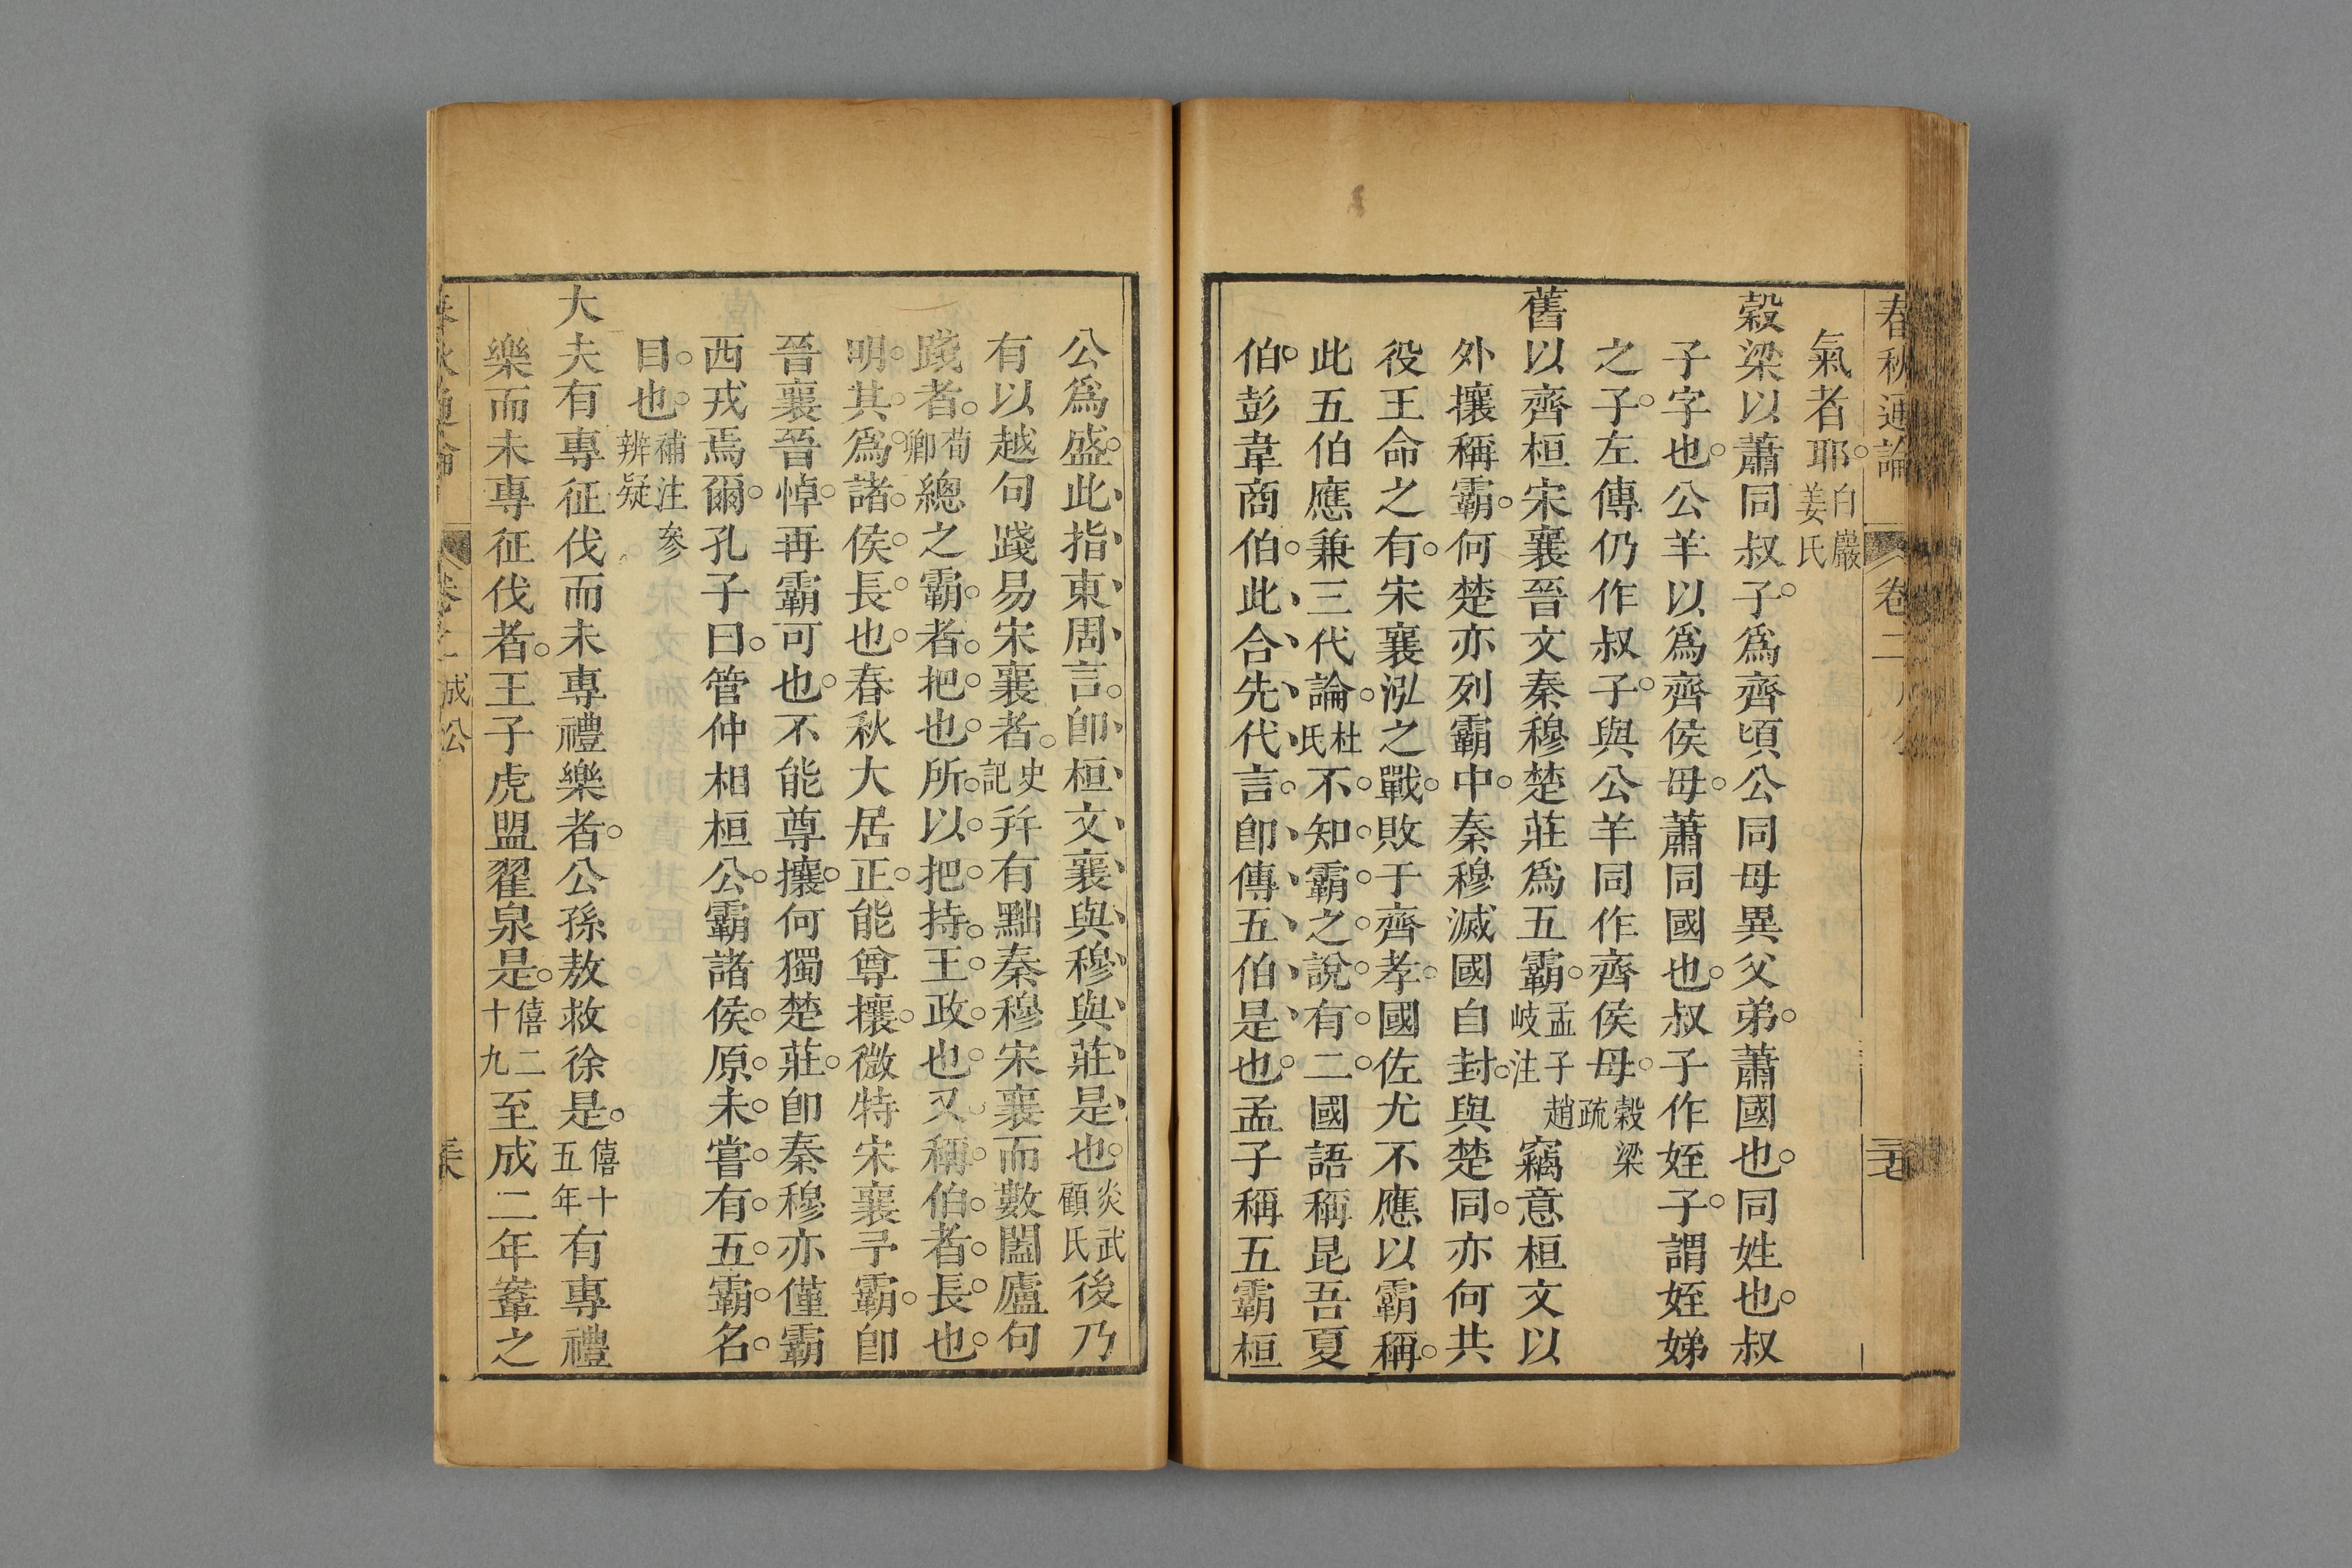 春秋通論 卷二
氣者耶白巖姜氏
穀梁以蕭同叔子爲齊頃公同母異父弟蕭國也同姓也叔
子字也公羊以爲齊侯母蕭同國也叔子作姪子謂姪娣
之子左傳仍作叔子與公羊同作齊侯母穀梁疏
舊以齊桓宋襄晉文秦穆楚莊爲五霸孟子趙岐注竊意桓文以
外攘稱霸何楚亦列霸中秦穆滅國自封與楚同亦何共
役王命之有宋襄泓之戰敗于齊孝國佐尤不應以霸稱
此五伯應兼三代論杜氏不知霸之說有二國語稱昆吾夏
伯彭韋商伯此合先代言卽傳五伯是也孟子稱五霸桓
公爲盛此指東周言卽桓文襄與穆與莊是也炎武顧氏後乃
有以越句踐易宋襄者史記幷有黜秦穆宋襄而數闔廬句
踐者荀卿總之霸者把也所以把持王政也又稱伯者長也
明其爲諸侯長也春秋大居正能尊攘微特宋襄予霸卽
晉襄晉悼再霸可也不能尊攘何獨楚莊卽秦穆亦僅霸
西戎焉爾孔子曰管仲相桓公霸諸侯原未嘗有五霸名
目也補注參辨疑
大夫有專征伐而未專禮樂者公孫敖救徐是僖十五年有專禮
樂而未專征伐者王子虎盟翟泉是僖二十九至成二年鞌之
春秋通論 卷之二 成公